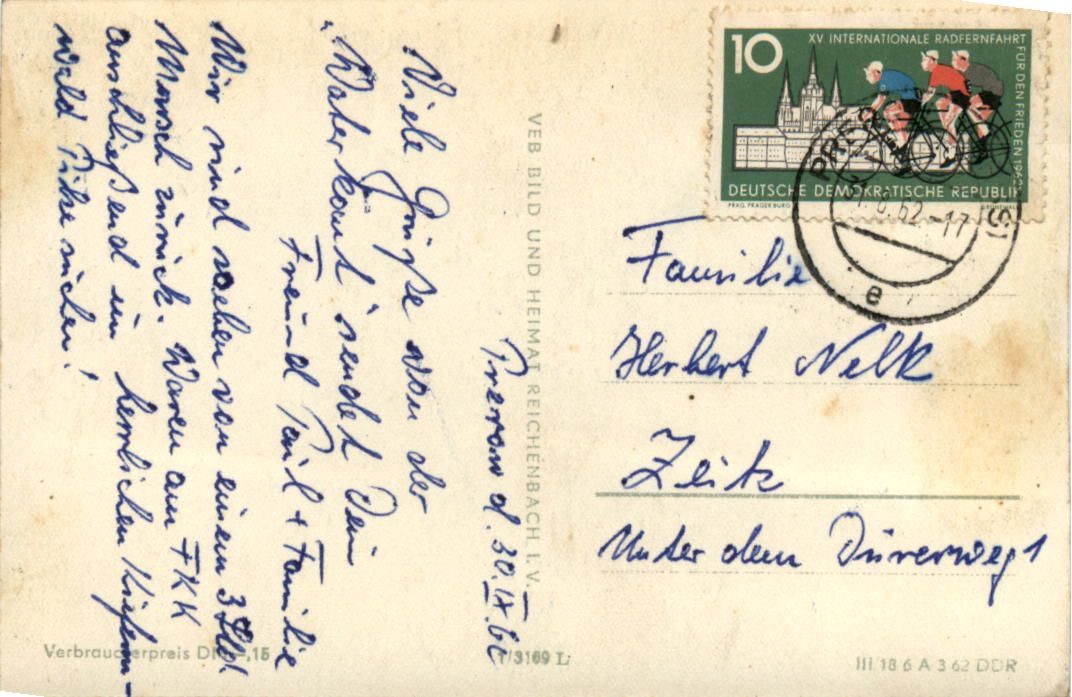 Prerow d. 30.IX.62
Viele Grüße von der
„Waterkant" sendet Dein
Freund Paul + Familie
Wir sind soeben von einem 3 Std
Marsch zurück. Waren am FKK
anschließend im herrlichen Kiefern-
wald Pilze suchen!
VEB BILD UND HEIMAT REICHENBACH I. V.
Verbraucherpreis DM -,15
1/3169 L
10
XV INTERNATIONALE RADFERNFAHRT
FÜR DEN FRIEDEN 1962
DEUTSCHE DEMOKRATISCHE REPUBLIK
PRAG, PRAGER BURG
.62.-17
e
Familie
Herbert Nelk
Zeitz
Unter dem Dürerweg 1
III 18 6 A 3 62 DDR